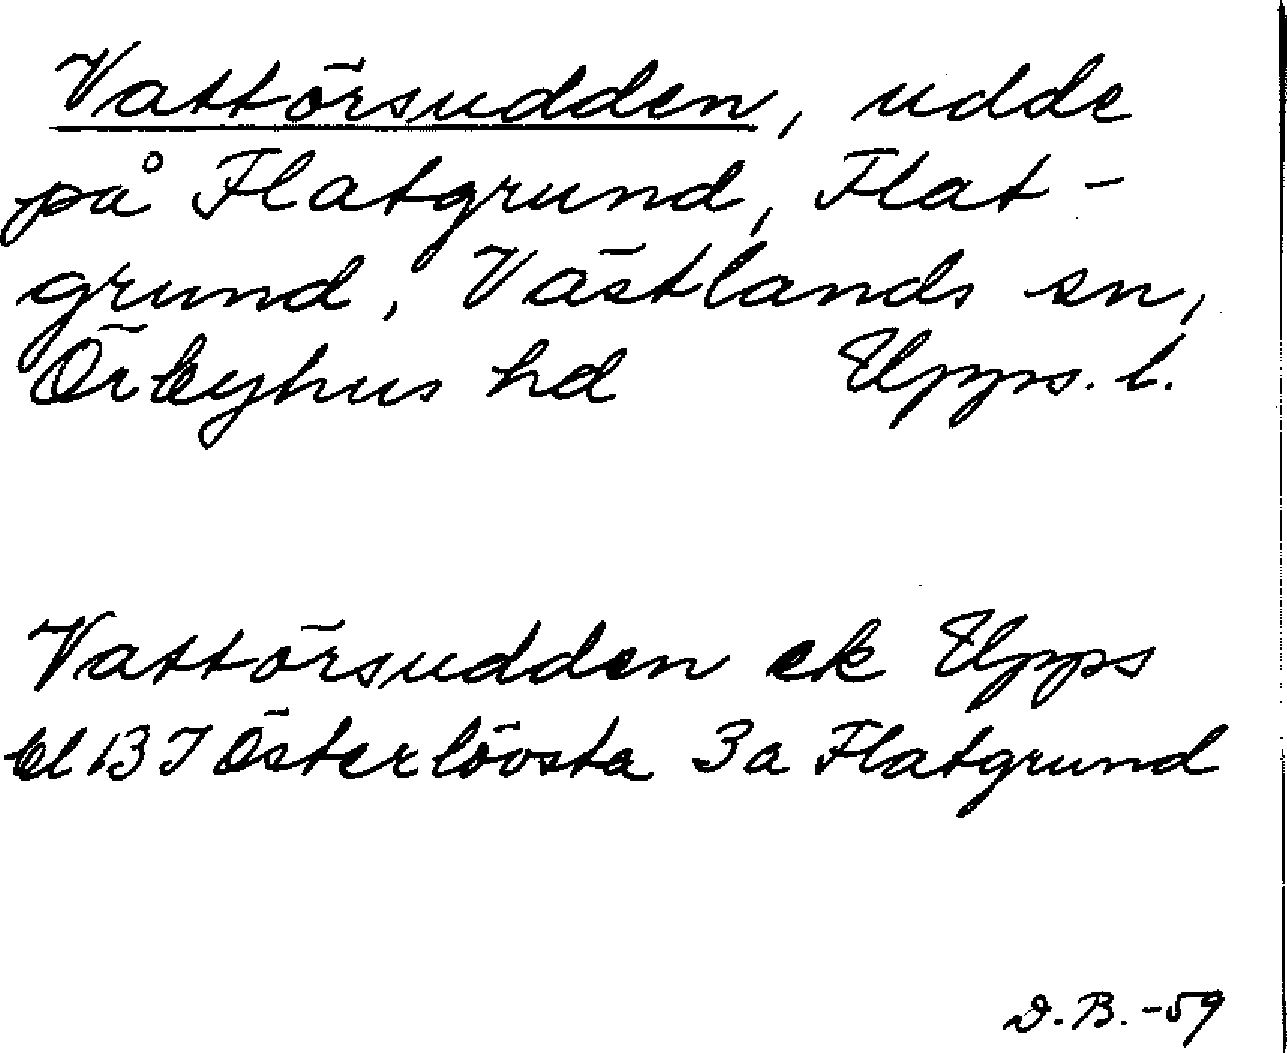 Vattörsudden, udde
på Flatgrund, Flat-
grund, Västlands sn,
Örbyhus hd Upps. l.
Vattörsudden ek Upps
bl 13 I Österlövsta 3a Flatgrund
D.B. -59